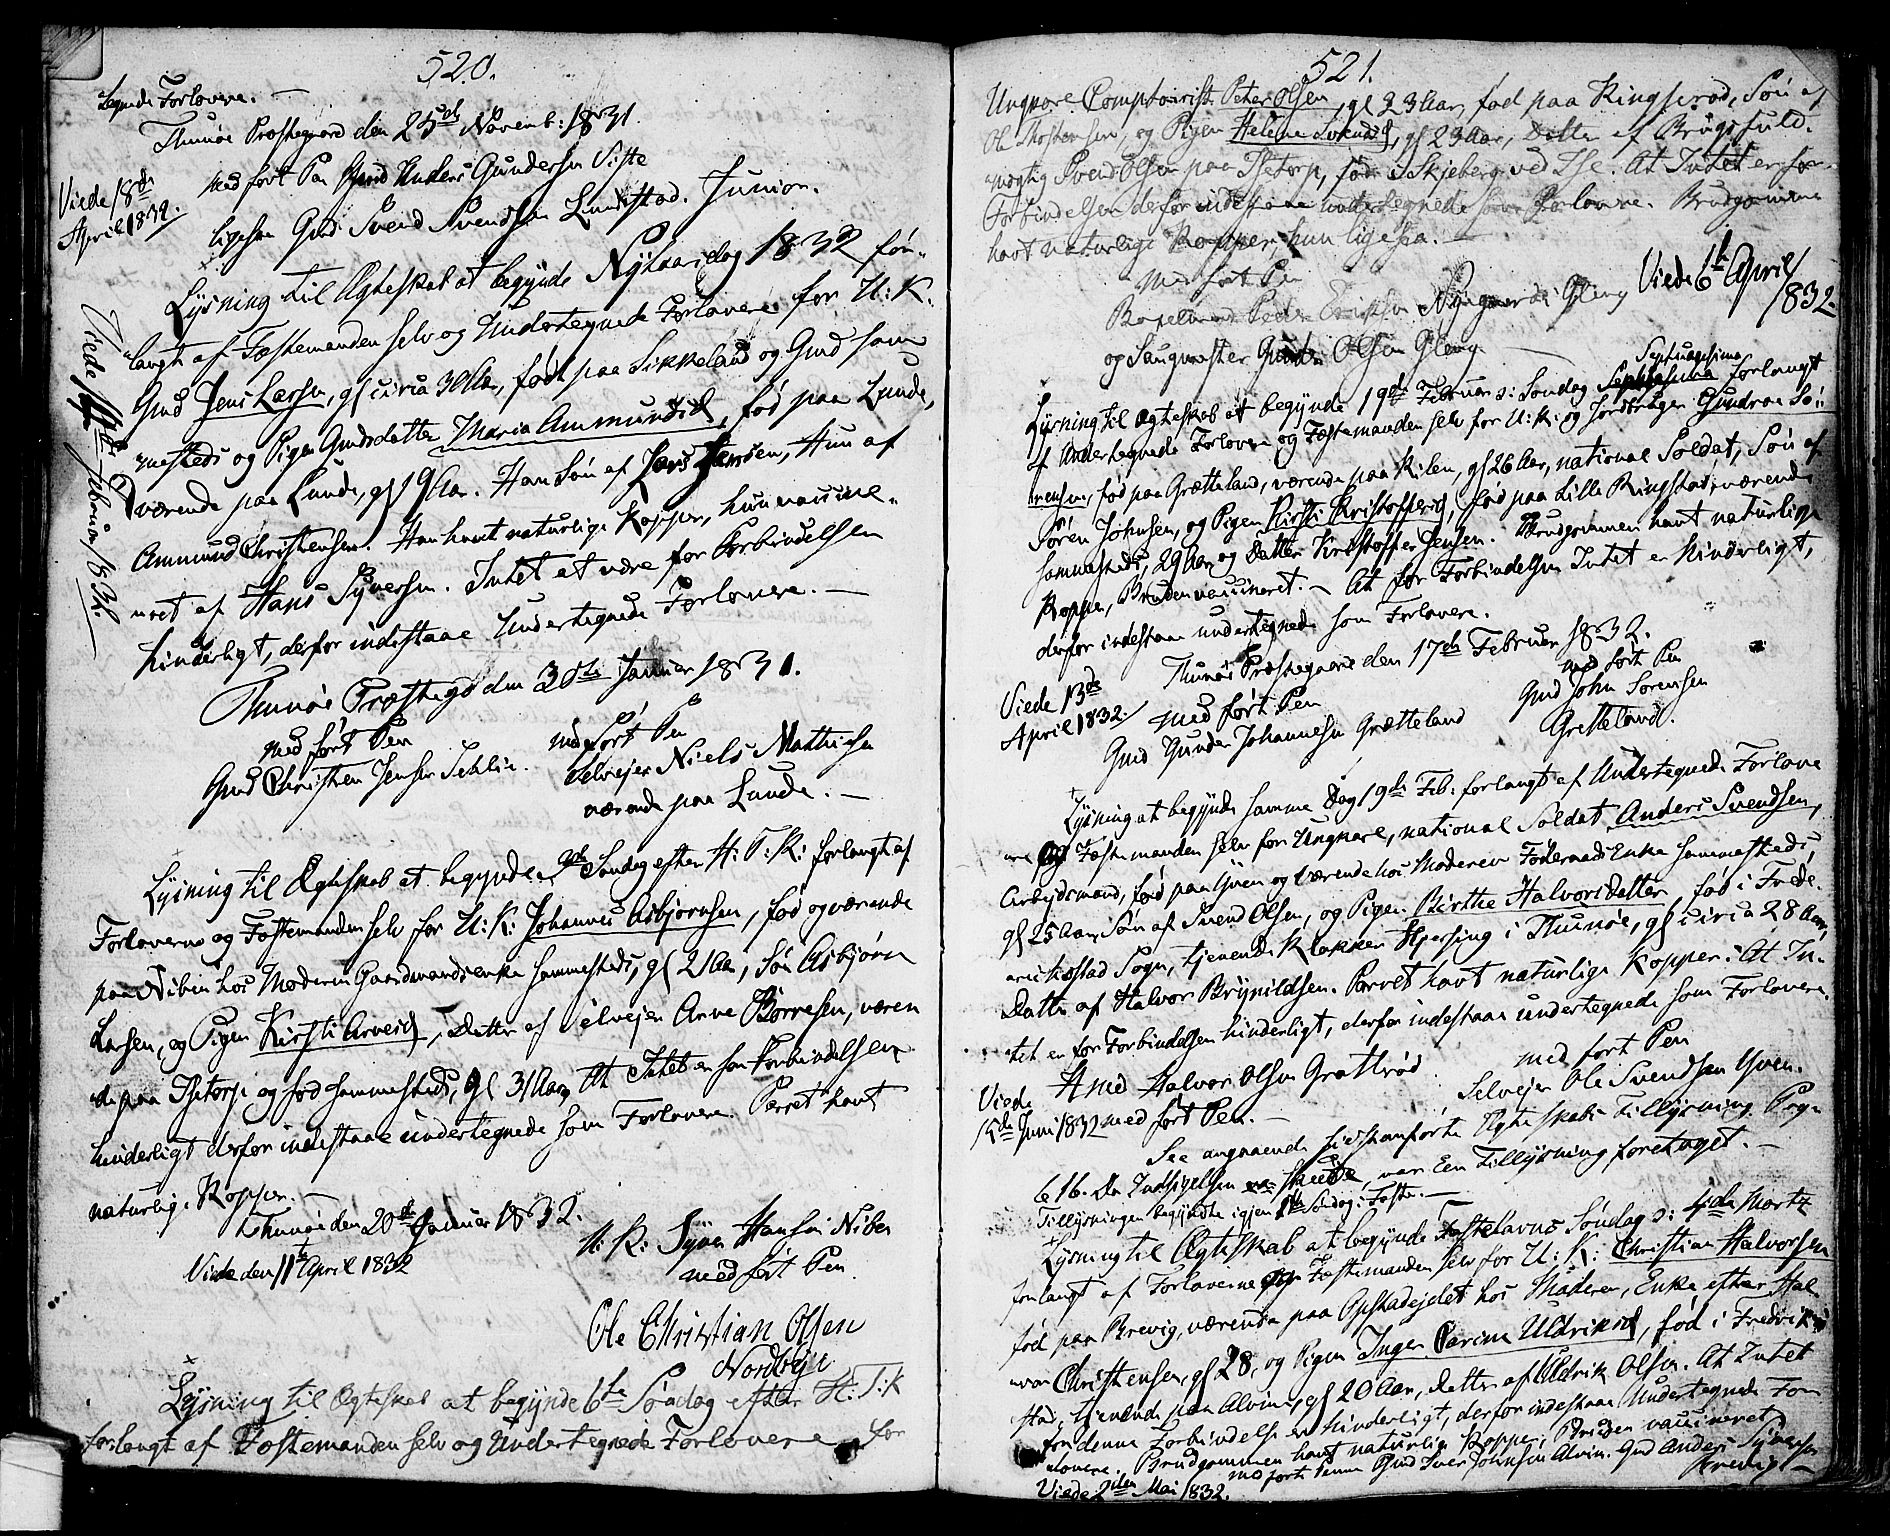 520.
tegnede Forlovere. —
Thunøe Præstegaard den 25de Novemb: 1831.
med ført Pen Gmd Anders Gundersen Viste
Viede 18de
April 1832.
ligesaa Gmd Svend Svendsen Lundestad. Junior.
Lysning til Ægteskab at begynde Nytaarsdag 1832 for-
langt af Fæstemanden selv og Undertegnede Forlovere for U: K:
Gmd Jens Larsen, gl circa 30 Aar, født paa Sikkeland og Gmd sam-
mesteds og Pigen Gmdsdatter Maria Ammundsd, fød paa Lunde,
værende paa Lunde, gl 19 Aar. Han Søn af Lars Jensen, Hun af
Ammund Christensen. Han havt naturlige Kopper, hun vaccine-
Viede Februar 1832.
ret af Hans Syversen. Intet at være for Forbindelsen
hinderligt, derfor indestaae Undertegnede Forlovere. —
Thunøe Præstegd den 30te Januar 1831.
med ført Pen
Gmd Christen Jensen Sehlin.
med ført Pen
Selvejer Niels Mathisen
værende paa Lunde. —
Lysning til Ægteskab at begynde Søndag efter H: T: K: forlangt af
Forloverne og Fæstemanden selv for U: K: Johannes Asbjørnsen, fød og værende
paa Nibin hos Moderen Gaardmandsenke sammesteds, gl 21 Aar, Søn Asbjørn
Larsen, og Pigen Kirsti Arvesd, Datter af Selvejer Arve Børresen, væren
de paa Isetorp og fød sammesteds, gl 31 Aar, At Intet er for Forbindelsen
hinderligt derfor indestaae undertegnede som Forlovere. Parret havt
naturlige Kopper. —
Thunøe den 20de Januar 1832.
Viede den 11te April 1832
U: K: Syver Hansen Niben
med ført Pen.
Ole Christian Olsen
Nordbye
Lysning til Ægteskab at begynde 6te Søndag efter H: T: K
forlangt af Fæstemanden selv og Undertegnede Forlovere for
521.
Ungkarl Comptoirist Peter Olsen, gl 23 Aar, fød paa Ringserød, Søn af
Ole Thostensen, og Pigen Helene Svendsd, gl 23 Aar, Datter af Brugsfuld-
mægtig Svend Olsen paa Isetorp, fød i Skjeberg ved Ise. At Intet er for
Forbindelsen derfor indestaae undertegnede som Forlovere. Brudgommen
havt naturlige Kopper, hun ligesaa. —
med ført Pen
Viede 6te April
1832.
Peder Eriksen Nygaard i Gleng
og Saugmester Olsen Gleng —
Lysning til Ægteskab at begynde 19de Februar ɔ: Søndag Septuagesima forlangt
af Undertegnede Forlovere og Fæstemanden selv for U: K: og Jordbruger Gudroe Sö-
rensen, fød paa Grætteland, værende paa Kilen, gl 26 Aar, national Soldat, Søn af
Søren Johnsen, og Pigen Kirsti Kristoffersd, fød paa Lille Ringstad, værende
sammesteds, 29 Aar, og Datter Kristoffer Jensen. Brudgommen havt naturlige
Kopper, Bruden vaccineret. — At for Forbindelsen Intet er hinderligt,
derfor indestaae undertegnede som Forlovere.
Thunøe Præstegaard den 17de Februar 1832.
Viede 13de
April 1832.
med ført Pen
Gmd Gunder Johannesen Grætteland
med ført Pen
Gmd John Sørensen
Gretteland.
Lysning at begynde samme Dag 19de Feb: forlangt af Undertegnede Forlove
re og Fæstemanden selv for Ungkarl, national Soldat Anders Svendsen,
Arbejdsmand, fød paa Yven og værende hos Moderen Föderaads Enke sammesteds
gl 25 Aar, Søn af Svend Olsen, og Pigen Birthe Halvorsdatter, fød i Frede-
rikstad Sogn, tjenende Klokker Hjersing i Thunøe, gl circa 28 Aar,
Datter af Halvor Brynildsen. Parret havt naturlige Kopper. At In-
tet er for Forbindelsen hinderligt, derfor indestaae undertegnede som Forlovere.
Amd Halvor Olsen Gratterød
med ført Pen. —
med ført Pen
Selvejer Ole Svendsen Yven.
Viede
15de Juni 1832
See angaaende sidstanførte Ægteskabs Tillysning Pag
616. Da Indsigelsen skeede, var Een Tillysning foretaget. —
Tillysningen begyndte igjen 1ste Søndag i Faste. —
Lysning til Ægteskab at begynde Fastelavns Søndag ɔ: 4de Marts
forlangt af Forloverne og Fæstemanden selv for U: K: Christian Halvorsen
fød paa Brevig, værende paa Opstadejdet hos Moderen, Enke efter Hal
vor Christensen, gl 28, og Pigen Inger Carine Uldriksd, fød i Fredrik-
stad, tjenende paa Alvim, gl 20 Aar, Datter af Uldrik Olsen. At Intet
for denne Forbindelse er hinderligt, derfor indestaae Undertegnede For
lovere. Brudgommen havt naturlige Kopper, Bruden vaccineret
med ført Penne Gmd Iver Johnsen Alvin. Gmd Anders Syversen
Brevig. —
Viede 2den Mai 1832.